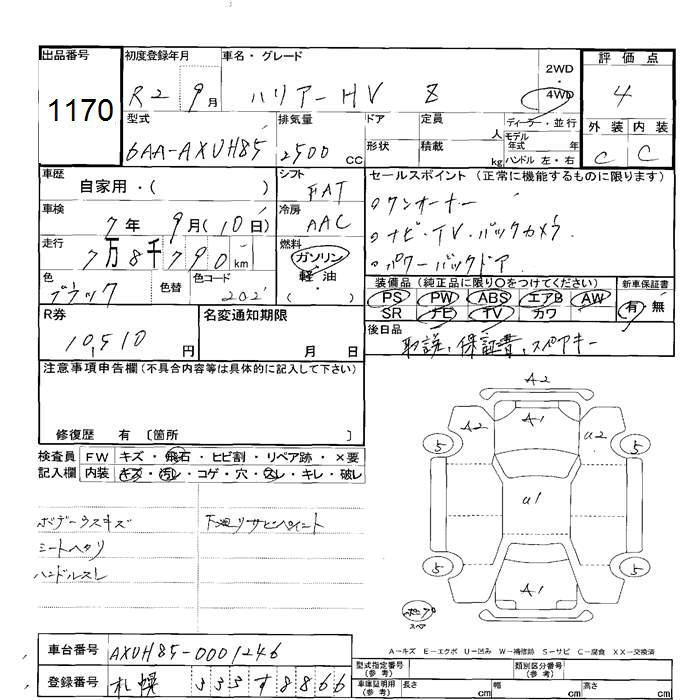 出品番号 初度登録年月 車名・グレード 評価点
1170 R2 9月 ハリアーHV Z 2WD・4WD 4
型式 排気量 ドア 定員 人 ディーラー・並行 外装 内装
6AA-AXUH85 2500 CC 形状 積載 kg モデル年式 年 ハンドル 左・右 C C
車歴 自家用・( ) シフト FAT セールスポイント(正常に機能するものに限ります)
車検 7年 9月(10日) 冷房 AAC ○ワンオーナー
走行 7万8千790km 燃料 ガソリン 軽油 ( ・ ) ○ナビ・TV・バックカメラ
○パワーバックドア
色 ブラック 色替 色コード 202 装備品(純正品に限り○をつけてください) 新車保証書
PS PW ABS エアB AW 有・無
SR ナビ TV カワ
R券 10,510円 名変通知期限 月 日 後日品
取説、保証書、スペアキー
注意事項申告欄(不具合内容等は具体的に記入して下さい)
修復歴 有 〔箇所 〕
検査員 FW キズ・飛石・ヒビ割・リペア跡・×要
記入欄 内装 キズ・汚レ・コゲ・穴・スレ・キレ・破レ
ボデーウスキズ 下廻リサビペイント
シートヘタリ
ハンドルスレ
A2
A2 A1 U2
5 5
U1
5 5
A1
スペア
A−キズ E−エクボ U−凹み W−補修跡 S−サビ C−腐食 XX−交換済
車台番号 AXUH85-0001246 型式指定番号(参考) 類別区分番号(参考)
登録番号 札幌 335 す 8866 車庫証明用(参考) 長さ cm 幅 cm 高さ cm